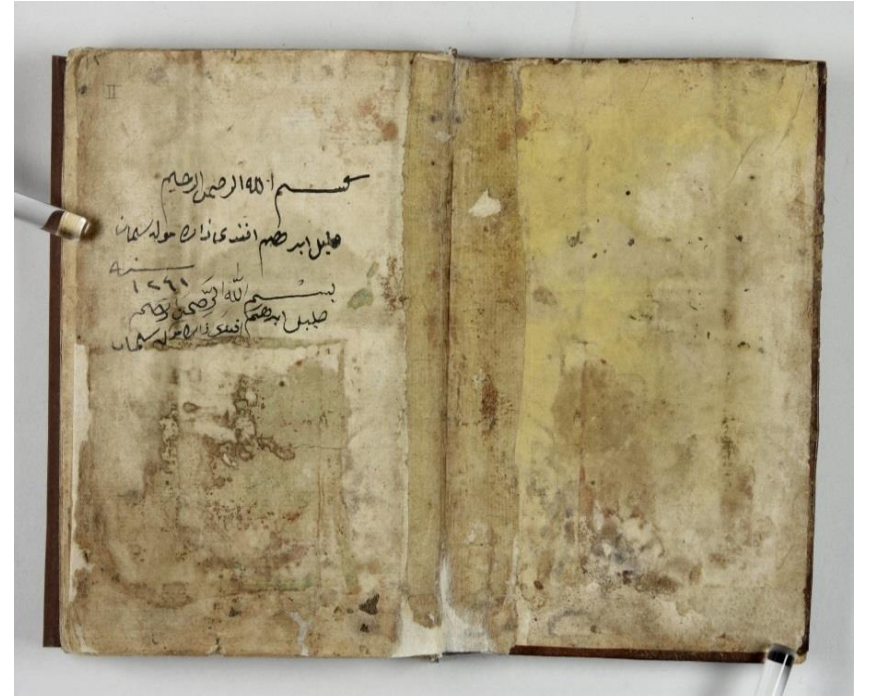 II
بسم الله الرحمن الرحيم
خليل ابرهيم افندى زاده مولا سليمان
سنه
١٢٦١
بسم الله الرحمن الرحيم
خليل ابرهيم افندى زاده